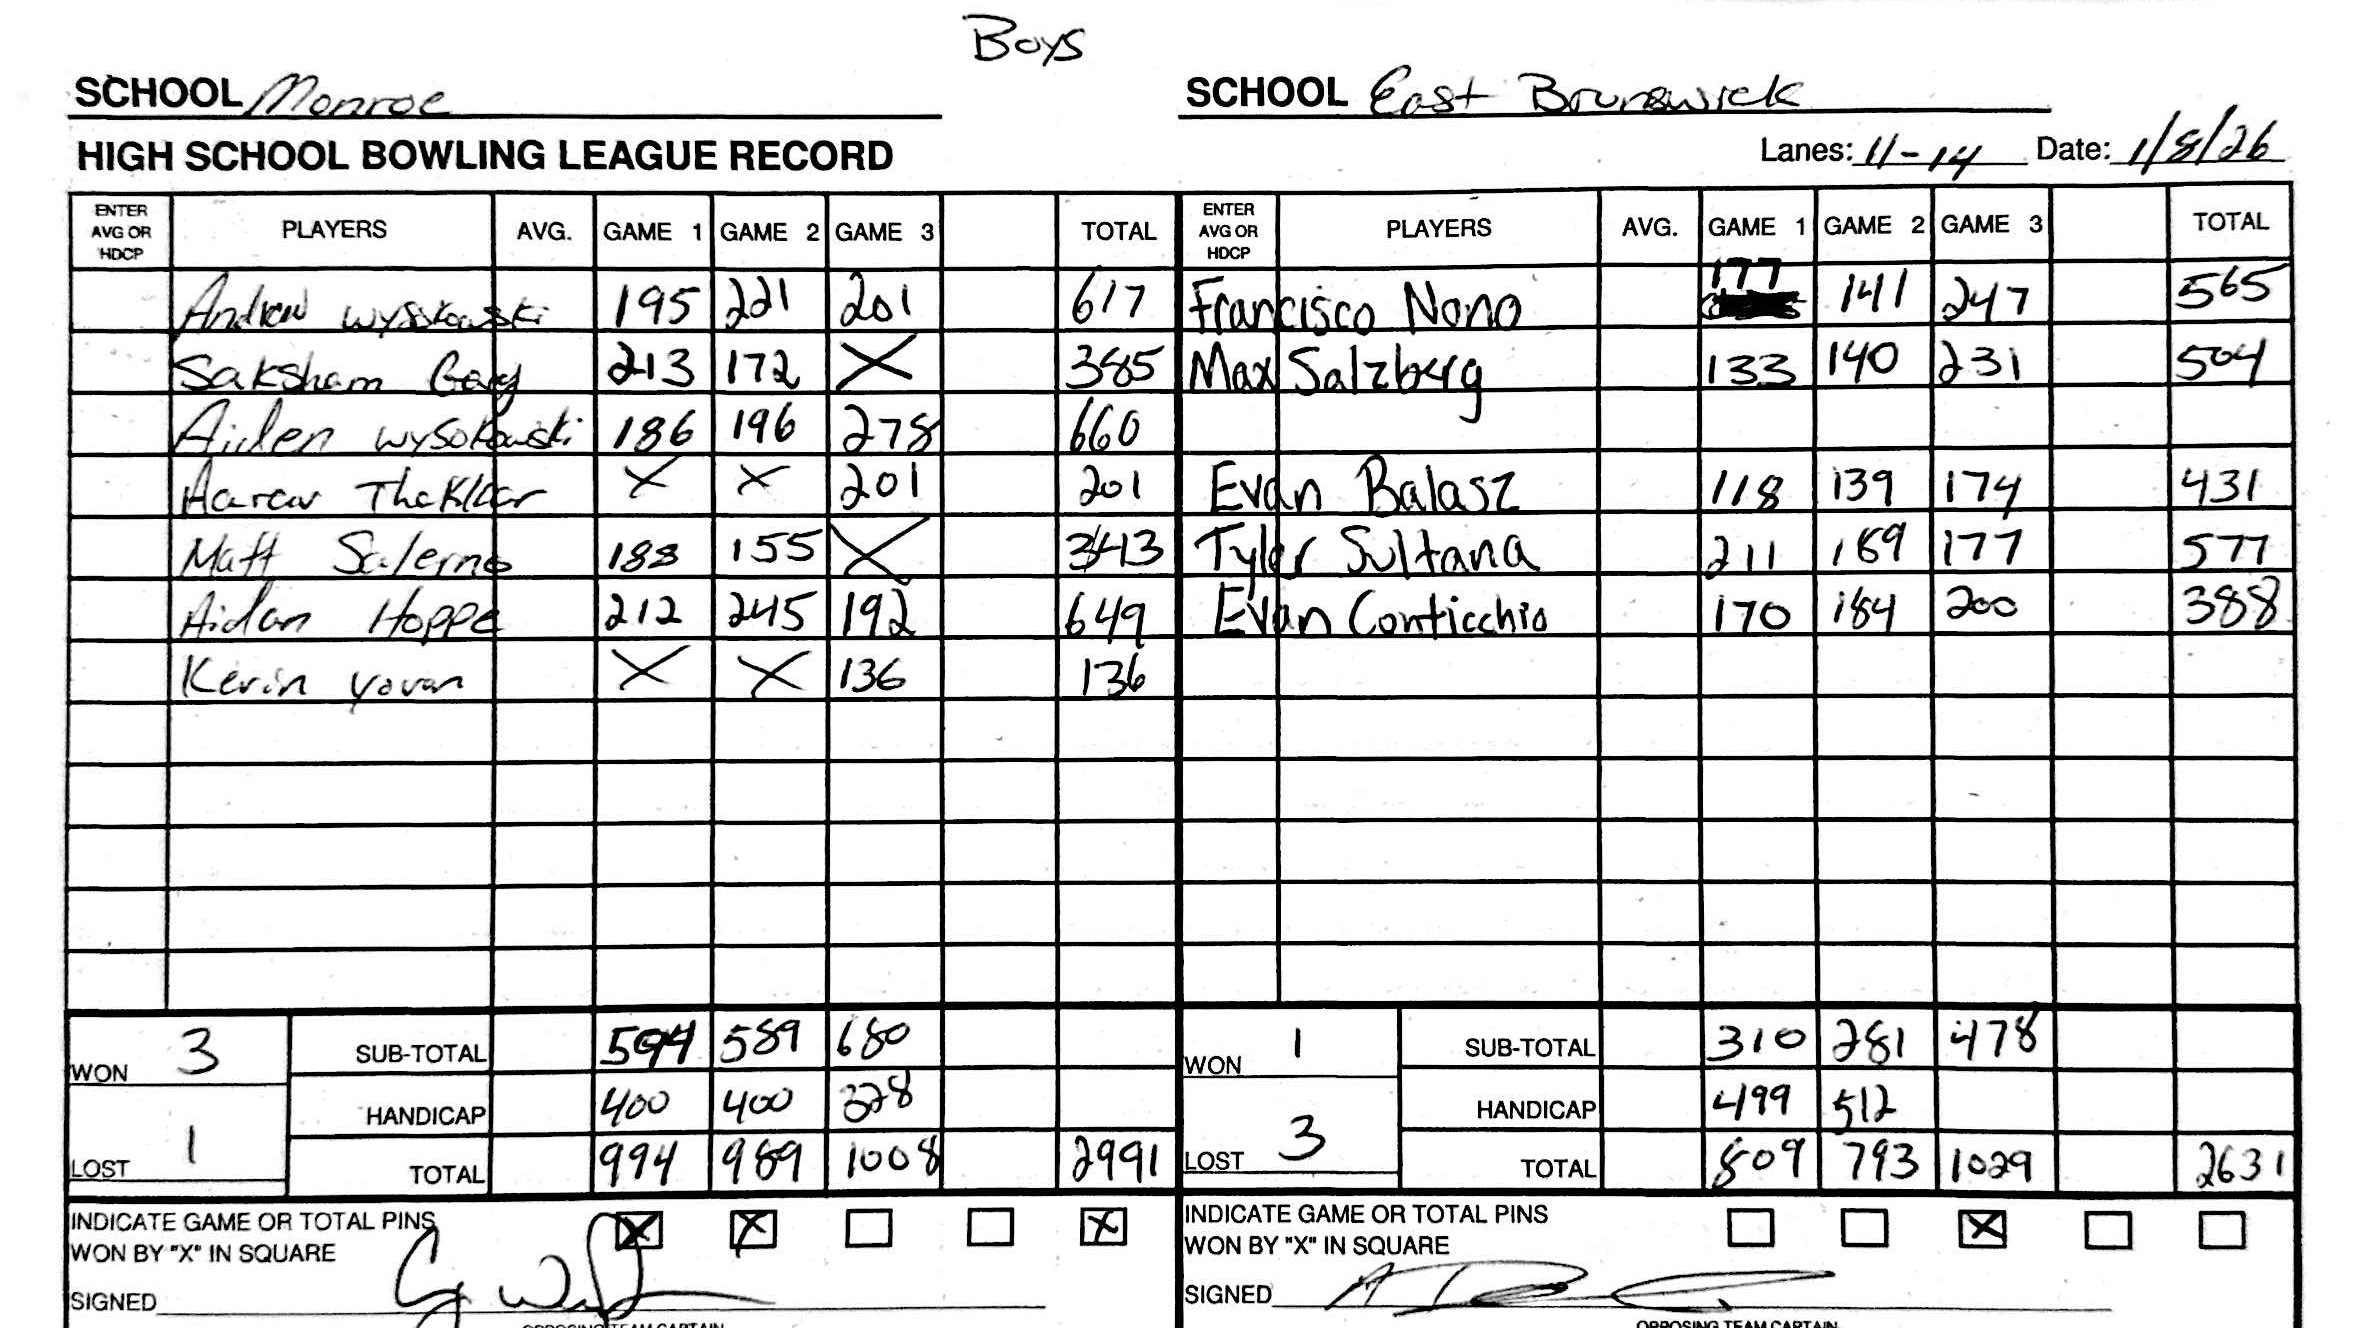 Boys
SCHOOL Monroe SCHOOL East Brunswick
HIGH SCHOOL BOWLING LEAGUE RECORD Lanes: 11-14 Date: 1/8/26
ENTER AVG OR HDCP PLAYERS AVG. GAME 1 GAME 2 GAME 3 TOTAL ENTER AVG OR HDCP PLAYERS AVG. GAME 1 GAME 2 GAME 3 TOTAL
Andrew Wysokowski 195 221 201 617 Francisco Nono 177 141 247 565
Saksham Garg 213 172 X 385 Max Salzberg 133 140 231 504
Aiden Wysokowski 186 196 278 660
Aarav Thakkar X X 201 201 Evan Balasz 118 139 174 431
Matt Salerno 188 155 X 343 Tyler Sultana 211 189 177 577
Aidan Hoppe 212 245 192 649 Evan Conticchio 170 184 200 388
Kevin X X 136 136
WON 3 SUB-TOTAL 594 589 680 WON 1 SUB-TOTAL 310 281 478
HANDICAP 400 400 328 HANDICAP 499 512
LOST 1 TOTAL 994 989 1008 2991 LOST 3 TOTAL 809 793 1029 2631
INDICATE GAME OR TOTAL PINS X X X INDICATE GAME OR TOTAL PINS X
WON BY "X" IN SQUARE WON BY "X" IN SQUARE
SIGNED SIGNED
OPPOSING TEAM CAPTAIN OPPOSING TEAM CAPTAIN